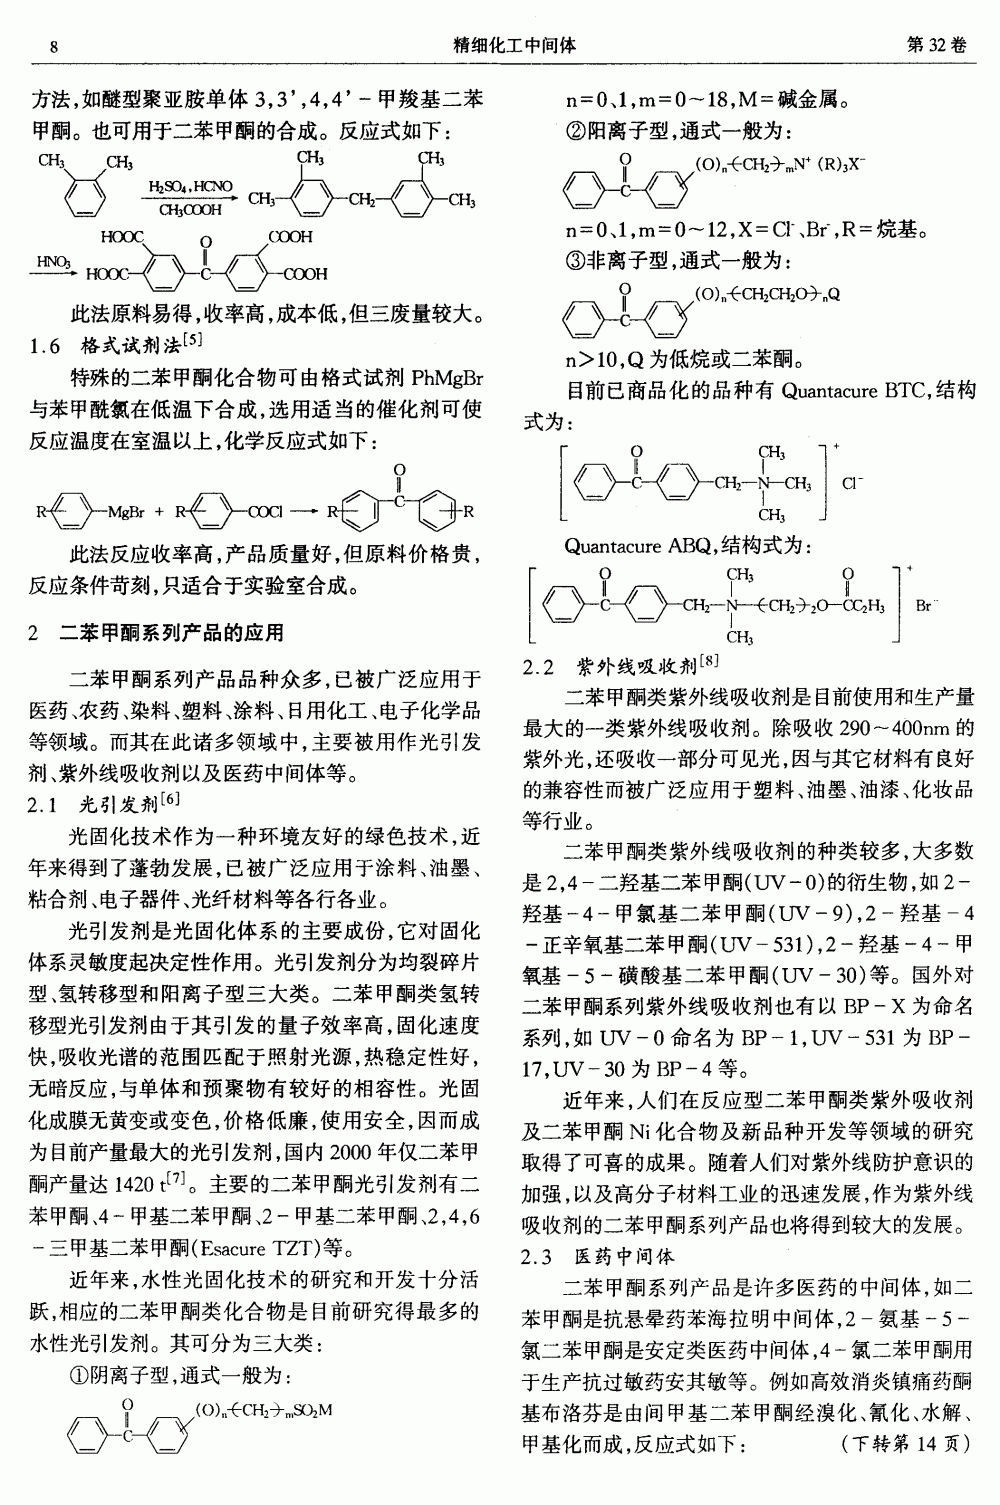 8
精细化工中间体
第 32 卷
方法,如醚型聚亚胺单体 3,3’,4,4’－甲羧基二苯
甲酮。也可用于二苯甲酮的合成。反应式如下:
CH₃ CH₃ CH₃ CH₃
H₂SO₄,HCNO
CH₃COOH
CH₃ CH₂ CH₃
HOOC O COOH
HNO₃ HOOC C COOH
此法原料易得,收率高,成本低,但三废量较大。
1.6 格式试剂法[5]
特殊的二苯甲酮化合物可由格式试剂 PhMgBr
与苯甲酰氯在低温下合成,选用适当的催化剂可使
反应温度在室温以上,化学反应式如下:
O
R MgBr + R COCl → R C R
此法反应收率高,产品质量好,但原料价格贵,
反应条件苛刻,只适合于实验室合成。
2 二苯甲酮系列产品的应用
二苯甲酮系列产品品种众多,已被广泛应用于
医药、农药、染料、塑料、涂料、日用化工、电子化学品
等领域。而其在此诸多领域中,主要被用作光引发
剂、紫外线吸收剂以及医药中间体等。
2.1 光引发剂[6]
光固化技术作为一种环境友好的绿色技术,近
年来得到了蓬勃发展,已被广泛应用于涂料、油墨、
粘合剂、电子器件、光纤材料等各行各业。
光引发剂是光固化体系的主要成份,它对固化
体系灵敏度起决定性作用。光引发剂分为均裂碎片
型、氢转移型和阳离子型三大类。二苯甲酮类氢转
移型光引发剂由于其引发的量子效率高,固化速度
快,吸收光谱的范围匹配于照射光源,热稳定性好,
无暗反应,与单体和预聚物有较好的相容性。光固
化成膜无黄变或变色,价格低廉,使用安全,因而成
为目前产量最大的光引发剂,国内 2000 年仅二苯甲
酮产量达 1420 t[7]。主要的二苯甲酮光引发剂有二
苯甲酮、4－甲基二苯甲酮、2－甲基二苯甲酮、2,4,6
－三甲基二苯甲酮(Esacure TZT)等。
近年来,水性光固化技术的研究和开发十分活
跃,相应的二苯甲酮类化合物是目前研究得最多的
水性光引发剂。其可分为三大类:
①阴离子型,通式一般为:
O
C (O)ₙ(CH₂)ₘSO₂M
n=0、1,m=0~18,M=碱金属。
②阳离子型,通式一般为:
O
C (O)ₙ(CH₂)ₘN⁺ (R)₃X⁻
n=0、1,m=0~12,X=Cl⁻、Br⁻,R=烷基。
③非离子型,通式一般为:
O
C (O)ₙ(CH₂CH₂O)ₙQ
n>10,Q 为低烷或二苯酮。
目前已商品化的品种有 Quantacure BTC,结构
式为:
O CH₃ +
C CH₂ N CH₃ Cl⁻
CH₃
Quantacure ABQ,结构式为:
O CH₃ O +
C CH₂ N (CH₂)₂O CC₂H₃ Br⁻
CH₃
2.2 紫外线吸收剂[8]
二苯甲酮类紫外线吸收剂是目前使用和生产量
最大的一类紫外线吸收剂。除吸收 290~400nm 的
紫外光,还吸收一部分可见光,因与其它材料有良好
的兼容性而被广泛应用于塑料、油墨、油漆、化妆品
等行业。
二苯甲酮类紫外线吸收剂的种类较多,大多数
是 2,4－二羟基二苯甲酮(UV－0)的衍生物,如 2－
羟基－4－甲氧基二苯甲酮(UV－9),2－羟基－4
－正辛氧基二苯甲酮(UV－531),2－羟基－4－甲
氧基－5－磺酸基二苯甲酮(UV－30)等。国外对
二苯甲酮系列紫外线吸收剂也有以 BP－X 为命名
系列,如 UV－0 命名为 BP－1,UV－531 为 BP－
17,UV－30 为 BP－4 等。
近年来,人们在反应型二苯甲酮类紫外吸收剂
及二苯甲酮 Ni 化合物及新品种开发等领域的研究
取得了可喜的成果。随着人们对紫外线防护意识的
加强,以及高分子材料工业的迅速发展,作为紫外线
吸收剂的二苯甲酮系列产品也将得到较大的发展。
2.3 医药中间体
二苯甲酮系列产品是许多医药的中间体,如二
苯甲酮是抗悬晕药苯海拉明中间体,2－氨基－5－
氯二苯甲酮是安定类医药中间体,4－氯二苯甲酮用
于生产抗过敏药安其敏等。例如高效消炎镇痛药酮
基布洛芬是由间甲基二苯甲酮经溴化、氰化、水解、
甲基化而成,反应式如下:
(下转第 14 页)